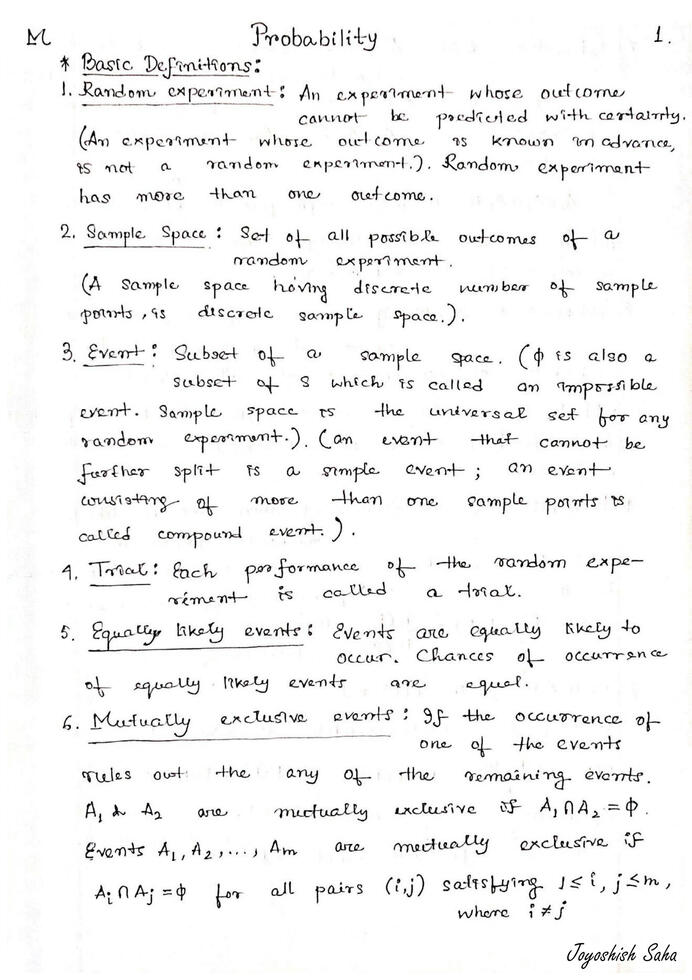 M Probability 1.
* Basic Definitions:
1. Random experiment: An experiment whose outcome
cannot be predicted with certainty.
(An experiment whose outcome is known in advance,
is not a random experiment.). Random experiment
has more than one outcome.
2. Sample Space: Set of all possible outcomes of a
random experiment.
(A sample space having discrete number of sample
points, is discrete sample space.).
3. Event: Subset of a sample space. (ϕ is also a
subset of S which is called an impossible
event. Sample space is the universal set for any
random experiment.). (an event that cannot be
further split is a simple event; an event
consisting of more than one sample points is
called compound event.).
4. Trial: Each performance of the random expe-
riment is called a trial.
5. Equally likely events: Events are equally likely to
occur. Chances of occurrence
of equally likely events are equal.
6. Mutually exclusive events: If the occurrence of
one of the events
rules out the any of the remaining events.
A₁ & A₂ are mutually exclusive if A₁ ∩ A₂ = ϕ.
Events A₁, A₂, ..., Am are mutually exclusive if
Ai ∩ Aj = ϕ for all pairs (i,j) satisfying 1 ≤ i, j ≤ m,
where i ≠ j
Joyoshish Saha